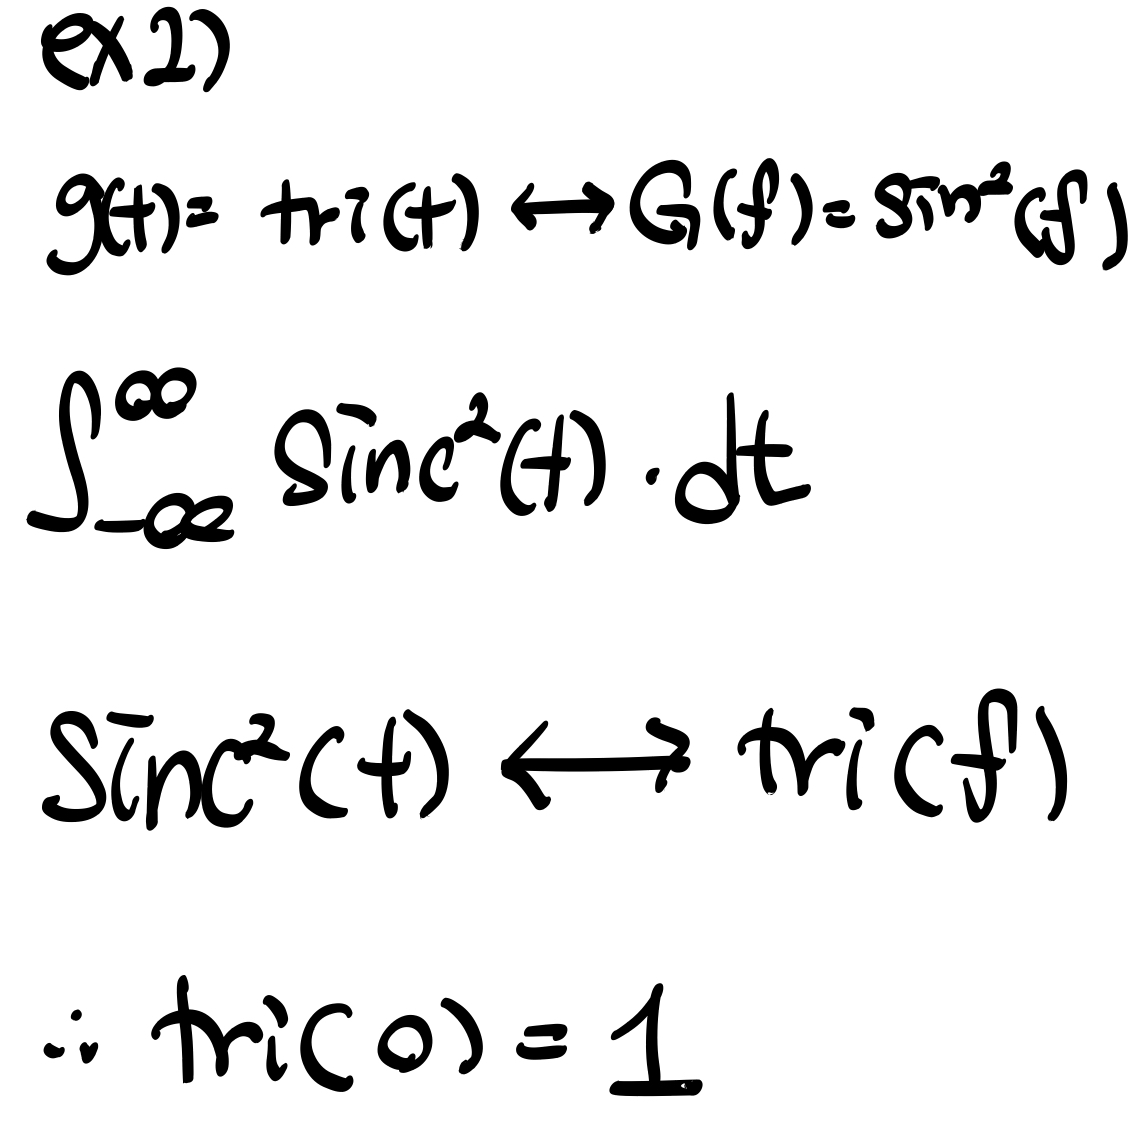 ex2)
g(t) = tri(t) ↔ G(f) = sin²(f)
∫_{-∞}^{∞} sinc²(t) · dt
sinc²(t) ↔ tri(f)
∴ tri(0) = 1